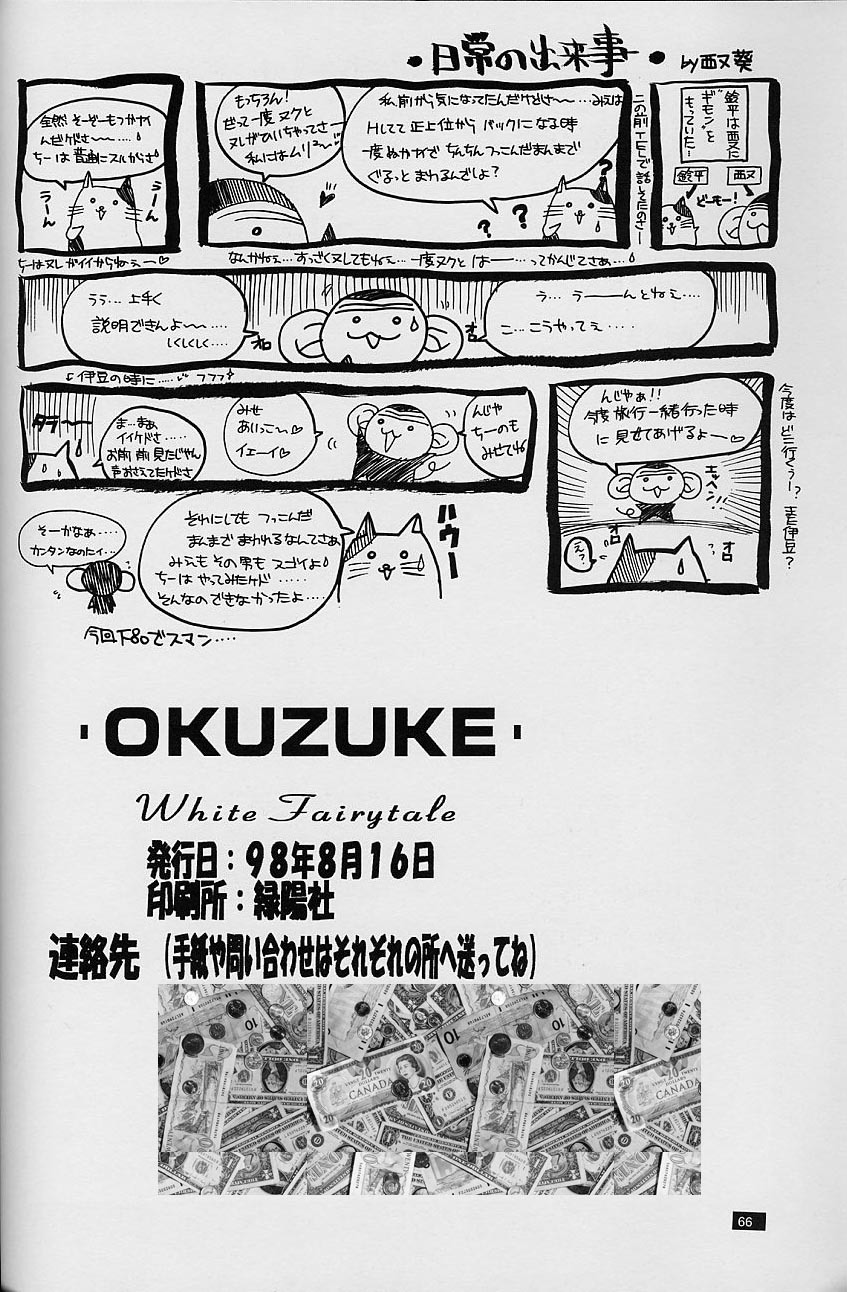 ・日常の出来事・ by 西又葵
鈴平は西又に
ギモンを
もっていた…
鈴平
西又
どーもー!
この前TELで話してたのさー
私、前から気になってたんだけどさー…みえは
Hしてて正上位からバックになる時
一度ぬかないでちんちんつっこんだまんまで
ぐるっとまわるんでしょ?
?
?
?
もっちろん!
だって一度ヌクと
ヌレがひいちゃってさー
私にはムリ
全然そーどーもつかない
んだケどさ〜…
ちーは普通にスルからさ
うーん
うーん
ちーはヌレがイイからねぇー♡
なんかねぇ…すっごくヌレてもねぇ…一度ヌクとはー…ってかんじでさぁ…
う…うーーんとねぇ…
こ…こうやってぇ….
オロ
うぅ…上手く
説明できんよ〜…
しくしくしく…
オロ
今度はどこ行くぅー?また伊豆?
んじゃぁ!!
今度旅行一緒行った時
に見せてあげるよー♡
エッヘン!!
えっ?
オロ
オロ
伊豆の時に…フフフ
んじゃ
ちーのも
みせてね
みせ
あいっこ〜♡
イェーイ♡
ま…まぁ
イイケどさ……
お前前見たじゃん
声おさえてたケどさ
タラ〜
ハウー
それにしてもつっこんだ
まんまでまわれるなんてさぁ
みえもその男もスゴイよ
ちーはやってみたケド……
そんなのできなかったよ…
そーかなぁ…
カンタンなのにィ…
今回下ネタでスマン…
・OKUZUKE・
White Fairytale
発行日:98年8月16日
印刷所:緑陽社
連絡先 (手紙や問い合わせはそれぞれの所へ送ってね)
CANADA
20
10
66